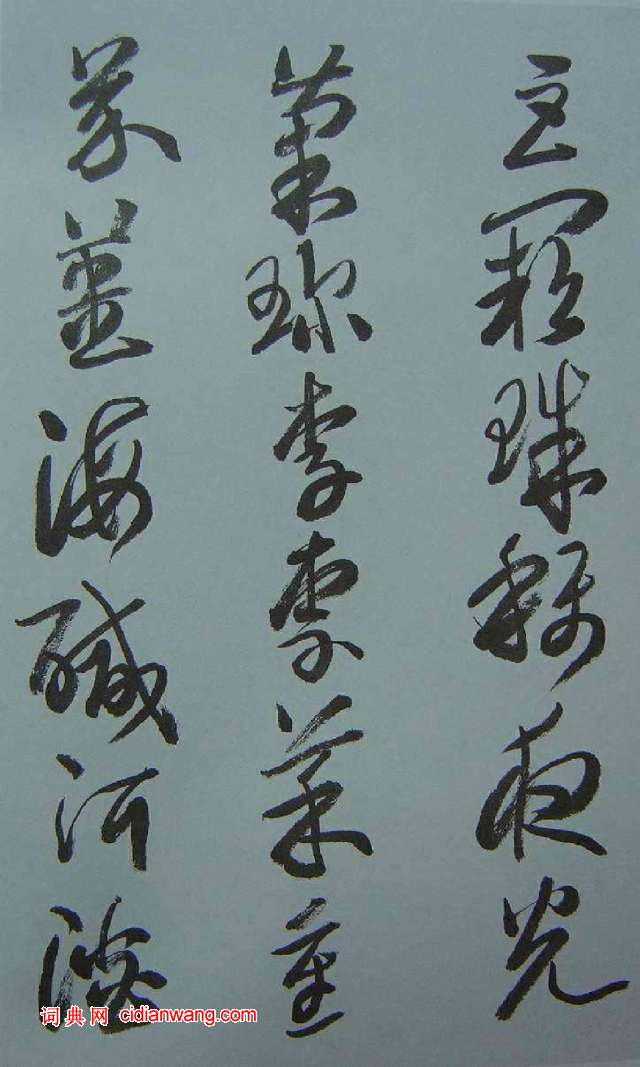 巨闕珠稱夜光
菓珍李柰菜重
芥薑海醎河淡
词典网 cidianwang.com